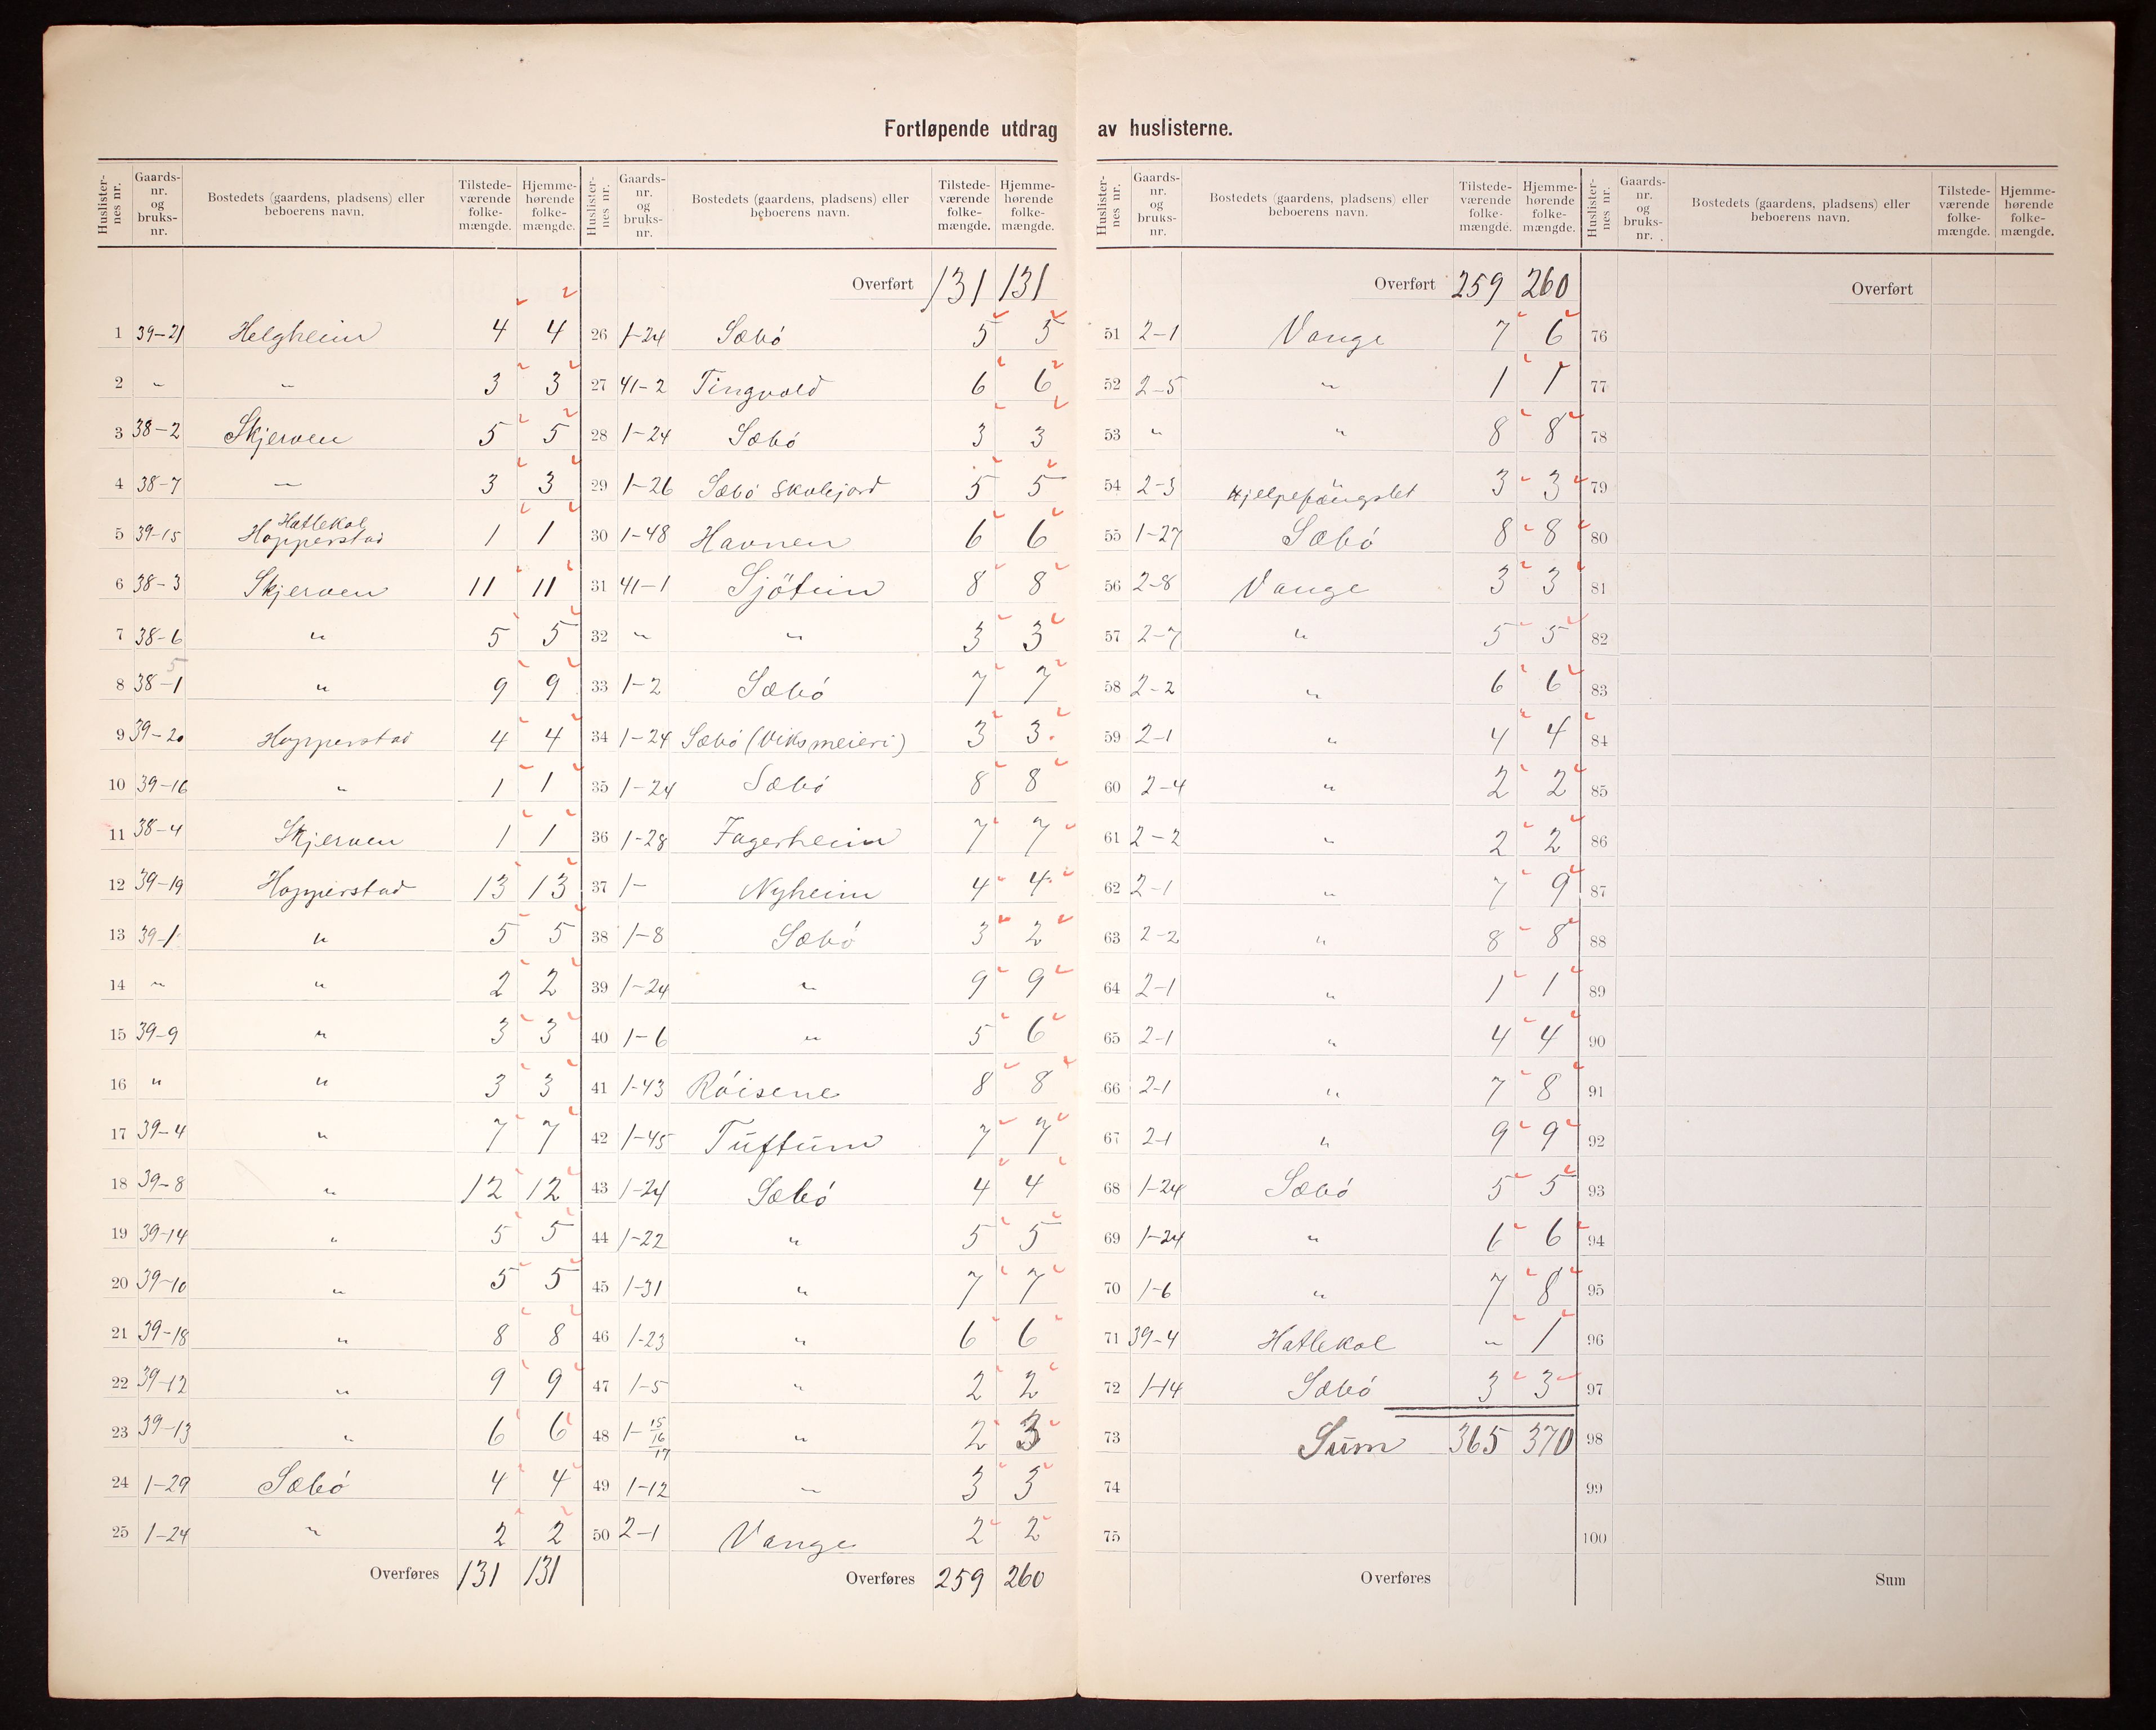 Fortløpende utdrag av huslisterne.
Huslisternes nr. Gaards-nr. og bruks-nr. Bostedets (gaardens, pladsens) eller beboerens navn. Tilstedeværende folkemængde. Hjemmehørende folkemængde.
1 39-21 Helgheim 4 4
2 " " 3 3
3 38-2 Skjerven 5 5
4 38-7 — 3 3
5 39-15 Hatlekol Hopperstad 1 1
6 38-3 Skjerven 11 11
7 38-6 " 5 5
8 38-1 5 " 9 9
9 39-20 Hopperstad 4 4
10 39-16 " 1 1
11 38-4 Skjerven 1 1
12 39-19 Hopperstad 13 13
13 39-1 " 5 5
14 " " 2 2
15 39-9 " 3 3
16 " " 3 3
17 39-4 " 7 7
18 39-8 " 12 12
19 39-14 " 5 5
20 39-10 " 5 5
21 39-18 " 8 8
22 39-12 " 9 9
23 39-13 " 6 6
24 1-29 Sæbó 4 4
25 1-24 " 2 2
Overføres 131 131
Huslisternes nr. Gaards-nr. og bruks-nr. Bostedets (gaardens, pladsens) eller beboerens navn. Tilstedeværende folkemængde. Hjemmehørende folkemængde.
Overført 131 131
26 1-24 Sæbó 5 5
27 41-2 Tingvold 6 6
28 1-24 Sæbó 3 3
29 1-26 Sæbó Skolejord 5 5
30 1-48 Havnen 6 6
31 41-1 Sjötun 8 8
32 " " 3 3
33 1-2 Sæbó 7 7
34 1-24 Sæbó (Viksmeieri) 3 3
35 1-24 Sæbó 8 8
36 1-28 Fagerheim 7 7
37 1- Nyheim 4 4
38 1-8 Sæbó 3 2
39 1-24 " 9 9
40 1-6 " 5 6
41 1-43 Róisene 8 8
42 1-45 Tuftum 7 7
43 1-24 Sæbó 4 4
44 1-22 " 5 5
45 1-31 " 7 7
46 1-23 " 6 6
47 1-5 " 2 2
48 1-15 16 17 " 2 3
49 1-12 " 3 3
50 2-1 Vange 2 2
Overføres 259 260
Huslisternes nr. Gaards-nr. og bruks-nr. Bostedets (gaardens, pladsens) eller beboerens navn. Tilstedeværende folkemængde. Hjemmehørende folkemængde.
Overført 259 260
51 2-1 Vange 7 6
52 2-5 " 1 1
53 " " 8 8
54 2-3 Hjelpefængslet 3 3
55 1-27 Sæbó 8 8
56 2-8 Vange 3 3
57 2-7 " 5 5
58 2-2 " 6 6
59 2-1 " 4 4
60 2-4 " 2 2
61 2-2 " 2 2
62 2-1 " 7 9
63 2-2 " 8 8
64 2-1 " 1 1
65 2-1 " 4 4
66 2-1 " 7 8
67 2-1 " 9 9
68 1-24 Sæbó 5 5
69 1-24 " 6 6
70 1-6 " 7 8
71 39-4 Hatlekol " 1
72 1-14 Sæbó 3 3
73 Sum 365 370
74
75
Overføres
Huslisternes nr. Gaards-nr. og bruks-nr. Bostedets (gaardens, pladsens) eller beboerens navn. Tilstedeværende folkemængde. Hjemmehørende folkemængde.
Overført
76
77
78
79
80
81
82
83
84
85
86
87
88
89
90
91
92
93
94
95
96
97
98
99
100
Sum